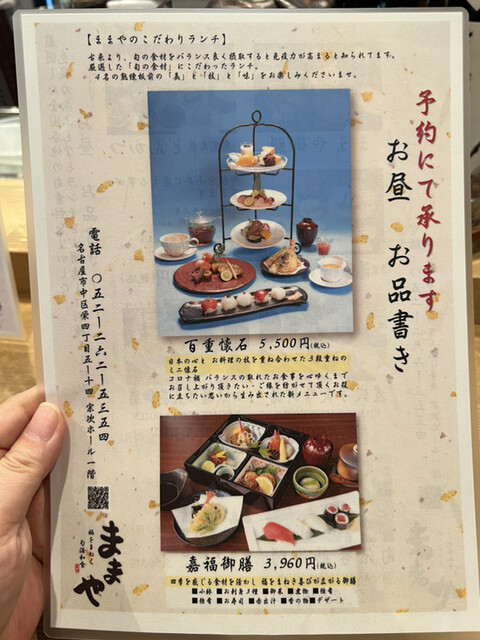 【ままやのこだわりランチ】
古来より、旬の食材をバランス良く摂取すると免疫力が高まると知られてます。
厳選した「旬の食材」にこだわったランチ。
4名の熟練板前の「美」と「技」と「味」をお楽しみくださいませ。
予約にて承ります
お昼 お品書き
百重懐石 5,500円(税込)
日本の心と お料理の技を重ね合わせた3段重ねの
ミニ懐石
コロナ禍 バランスの取れたお食事を心ゆくまで
お召し上がり頂きたい・ご縁を紡がせて頂くお役
に立ちたい思いから生み出された新メニューです。
嘉福御膳 3,960円(税込)
四季を感じる食材を活かし 福をまねき喜びが広がる御膳
■小鉢 ■お刺身3種 ■御菜 ■煮物 ■種肴
■強肴 ■お寿司 ■赤出汁 ■香の物 ■デザート
電話 〇五二ー二六二ー五三五四
名古屋市中区栄四丁目五ー十四 宗次ホール一階
福をまねく
旬活和食
ままや